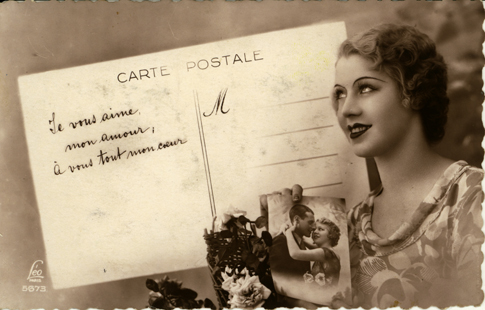 CARTE POSTALE
Je vous aime,
mon amour,
à vous tout mon cœur
M
Leo
PARIS
5873